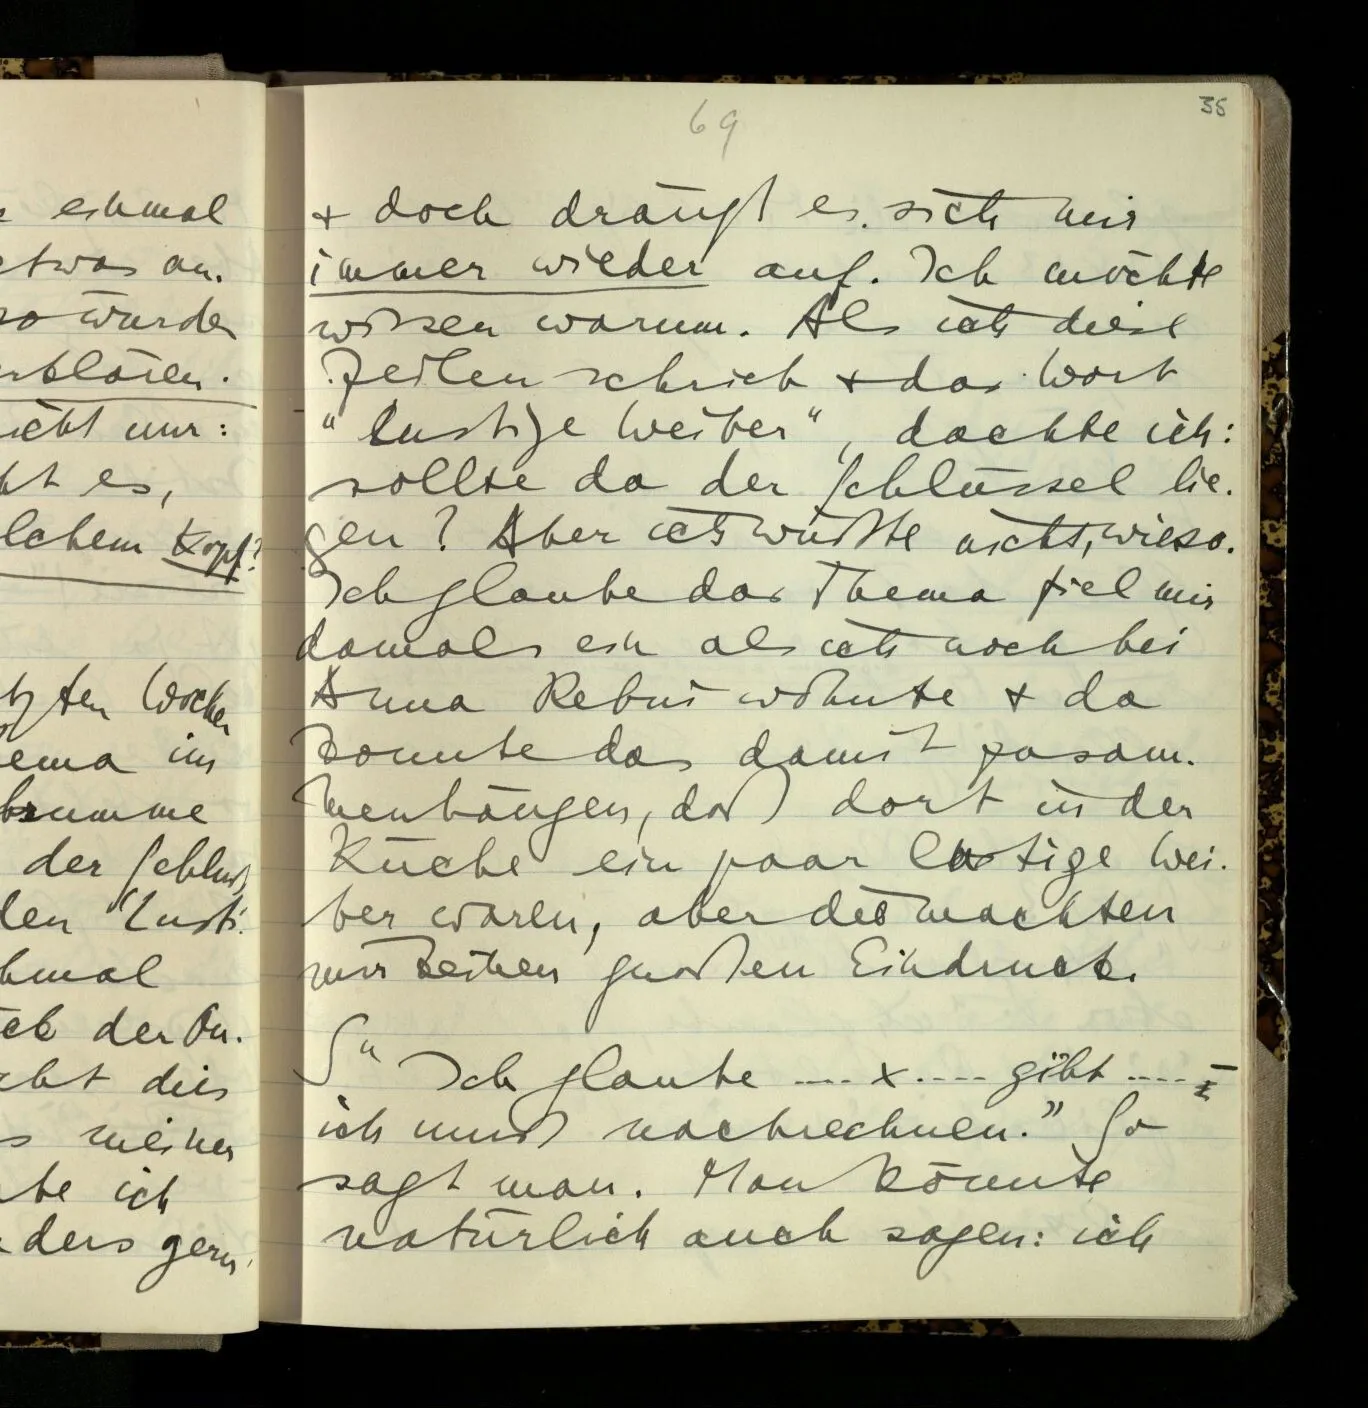 e einmal
etwas an.
so würde
erklären.
nicht nur:
ht es,
lchem Kopf?
tzten Wochen
ema im
brumme
der Schluß
den "Lusti-
hmal
ck der Ou-
cht dies
s meiner
be ich
ders gern,
69
35
& doch drängt es sich mir
immer wieder auf. Ich möchte
wissen warum. Als ich diese
Zeilen schrieb & das Wort
"lustige Weiber", dachte ich:
sollte da der Schlüssel lie-
gen? Aber ich wußte nicht, wieso.
Ich glaube das Thema fiel mir
damals ein als ich noch bei
Anna Rebni wohnte & da
konnte das damit zusam-
menhängen, daß dort in der
Küche ein paar lustige Wei-
ber waren, aber die machten
mir keinen großen Eindruck.
S" Ich glaube .... x .... gibt ....
ich muß nachrechnen." So
sagt man. Man könnte
natürlich auch sagen: ich